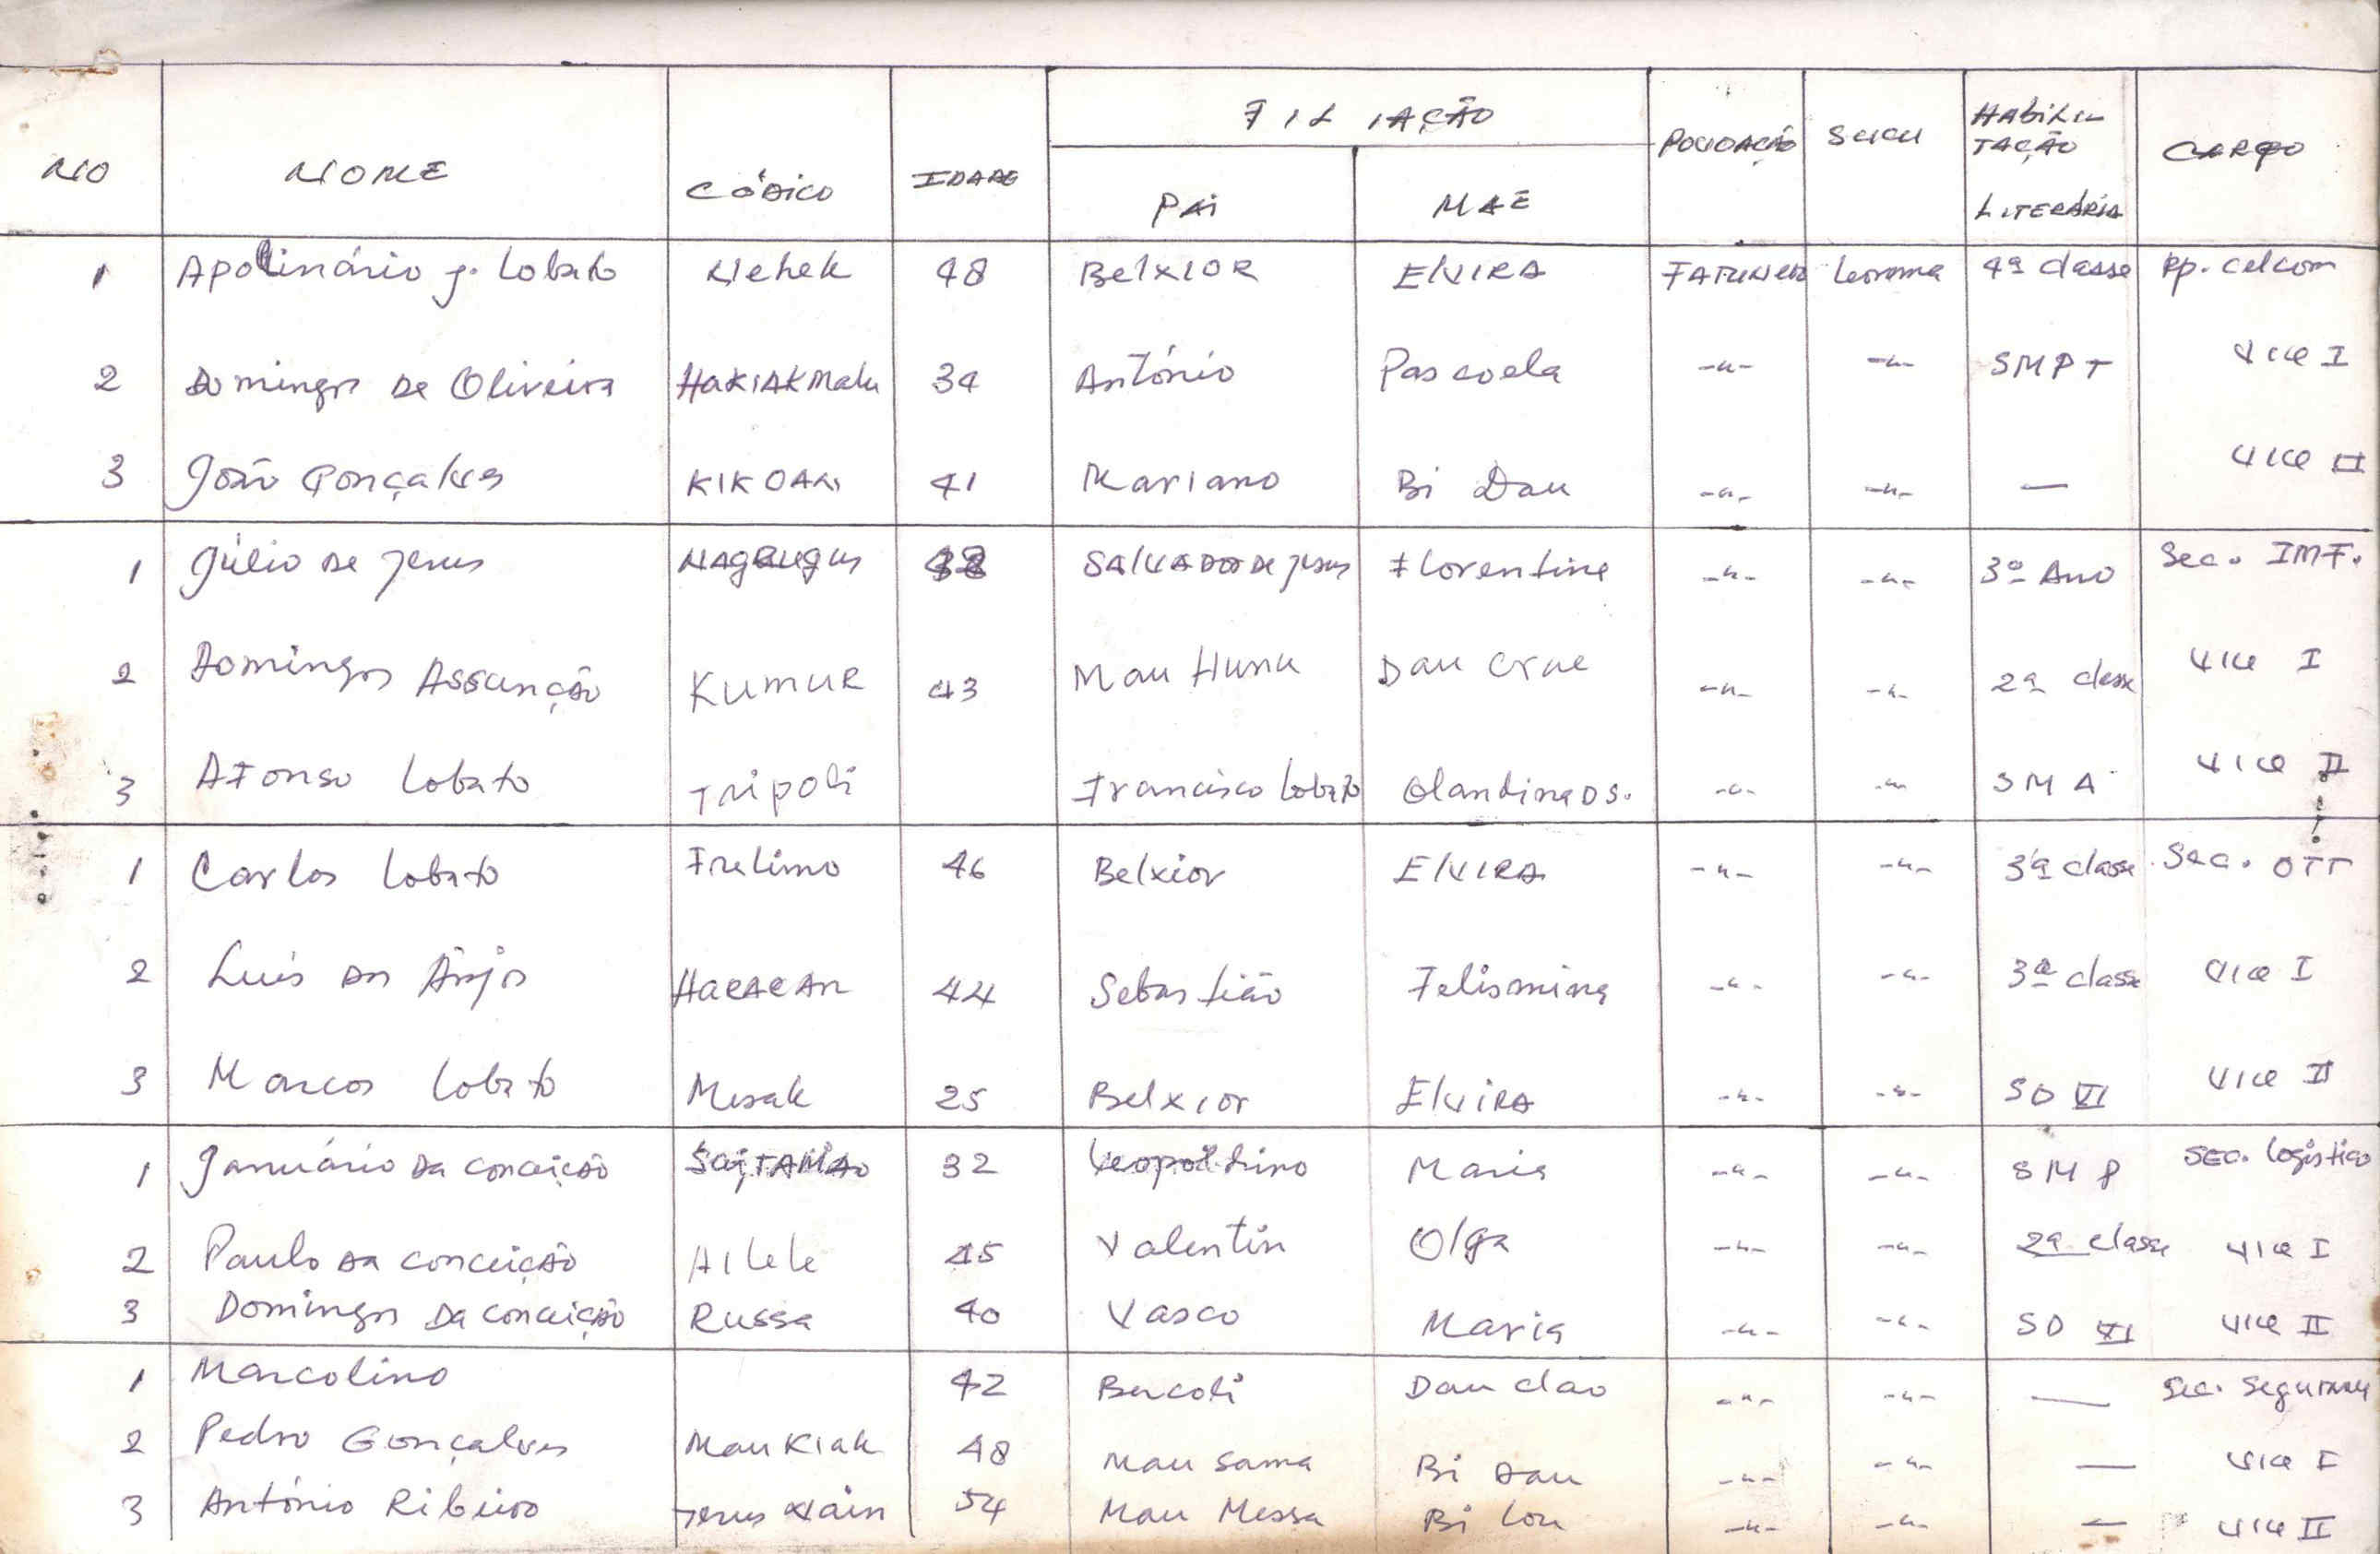 FILIAÇÃO
NO NOME CÓDICO IDADE PAI MAÉ POVOAÇÃO SUCU HABILITAÇÃO LITERÁRIA CARGO
1 Apolinário J. Lobato Nehek 48 Belxior Elvira Leorema 4ª classe Rp. celcom
2 Domingos de Oliveira Hakiakmalu 34 António Pascoela -"- -"- SMPT Vice I
3 João Gonçalves 41 Mariano Bi Dau -"- -"- — Vice II
1 Júlio de Jesus Salvador de Jesus Florentina -"- -"- 3º Ano Sec. IMF.
2 Domingos Assunção Kumur 43 Mau Hunu Dau -"- -"- 2ª classe Vice I
3 Afonso Lobato Tripoli Francisco Lobato Olandina D S. -"- -"- SMA Vice II
1 Carlos Lobato Frelimo 46 Belxior Elvira -"- -"- 3ª classe Sec. OTT
2 Luís dos Ânjos 44 Sebastião Felismina -"- -"- 3ª classe Vice I
3 Marcos Lobato Mesak 25 Belxior Elvira -"- -"- SD VI Vice II
1 Januário da Conceição 32 Leopoldino Maria -"- -"- SMP Sec. Logistica
2 Paulo da Conceição Ailele 45 Valentin Olga -"- -"- 2ª classe Vice I
3 Domingos da Conceição Russa 40 Vasco Maria -"- -"- SD VI Vice II
1 Marcolino 42 Bucoli Dau -"- -"- — Sec. Segurança
2 Pedro Gonçalves Maukiak 48 Mau Sama Bi Dau -"- -"- — Vice I
3 António Ribeiro 54 Mau Messa Bi Lou -"- -"- — Vice II